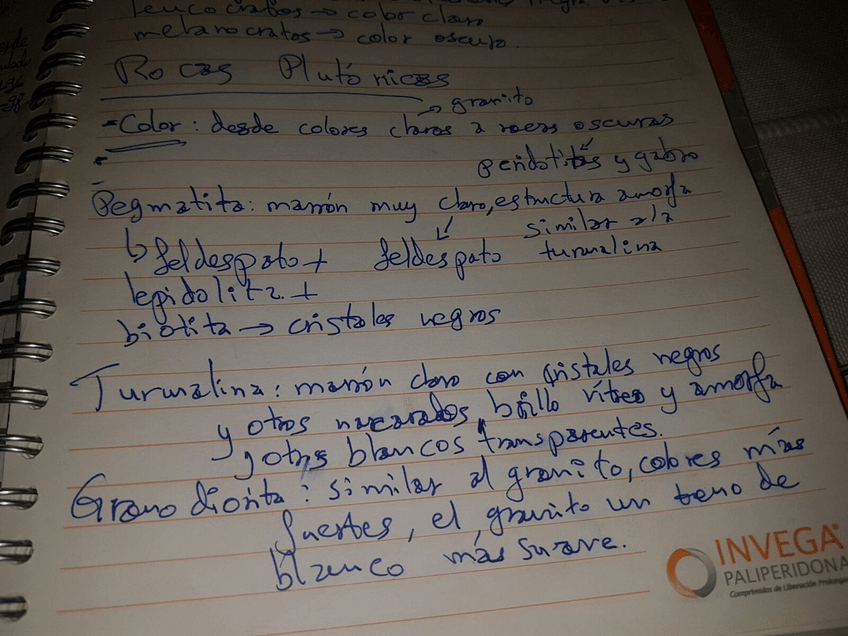 leucocratos → color claro
melanocratos → color oscuro.
Rocas Plutónicas
→ granito
- Color : desde colores claros a rocas oscuras
peridotitas y gabro
Pegmatita: marrón muy claro, estructura amorfa
similar a la
↳ feldespato + feldespato turmalina
lepidolita +
biotita → cristales negros
Turmalina : marrón claro con cristales negros
y otros nacarados, brillo vítreo y amorfa
y otros blancos transparentes.
Granodiorita : similar al granito, colores más
fuertes, el granito un tono de
blanco más suave.
INVEGA®
PALIPERIDONA
Comprimidos de Liberación Prolongada